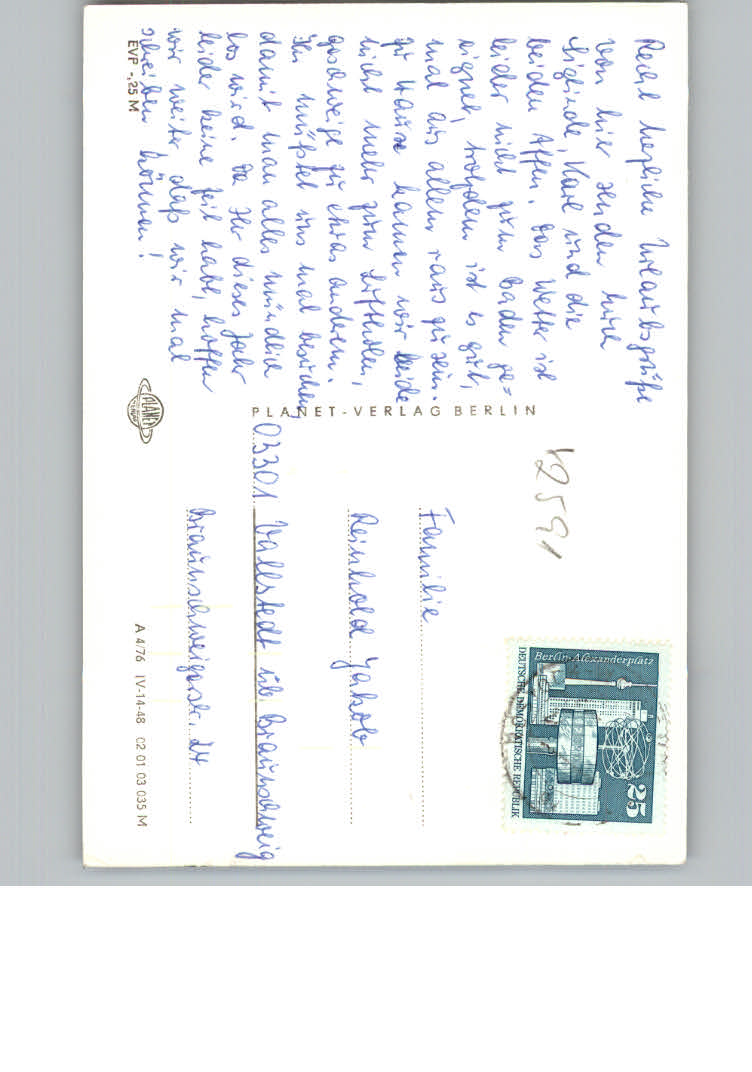 Recht herzliche Urlaubsgrüße
von hier senden Euch
Sieglinde, Karl und die
beiden Affen. Das Wetter ist
leider nicht zum Baden ge=
eignet, trotzdem ist es gut,
mal aus allem raus zu sein.
Zu Hause kamen wir beide
nicht mehr zum Luftholen,
geschweige zu etwas anderem.
Ihr müßtet uns mal besuchen,
damit man alles mündlich
los wird. Da Ihr dieses Jahr
leider keine Zeit habt, hoffen
wir weiter, daß wir mal
schreiben können!
EVP -,25 M
PLANET
PLANET-VERLAG BERLIN
12591
Berlin-Alexanderplatz
25
DEUTSCHE DEMOKRATISCHE REPUBLIK
Familie
Reinhold Jakob
03301 Vallstedt üb. Braunschweig
Braunschweigerstr. 24
A 4/76 IV-14-48 02 01 03 035 M